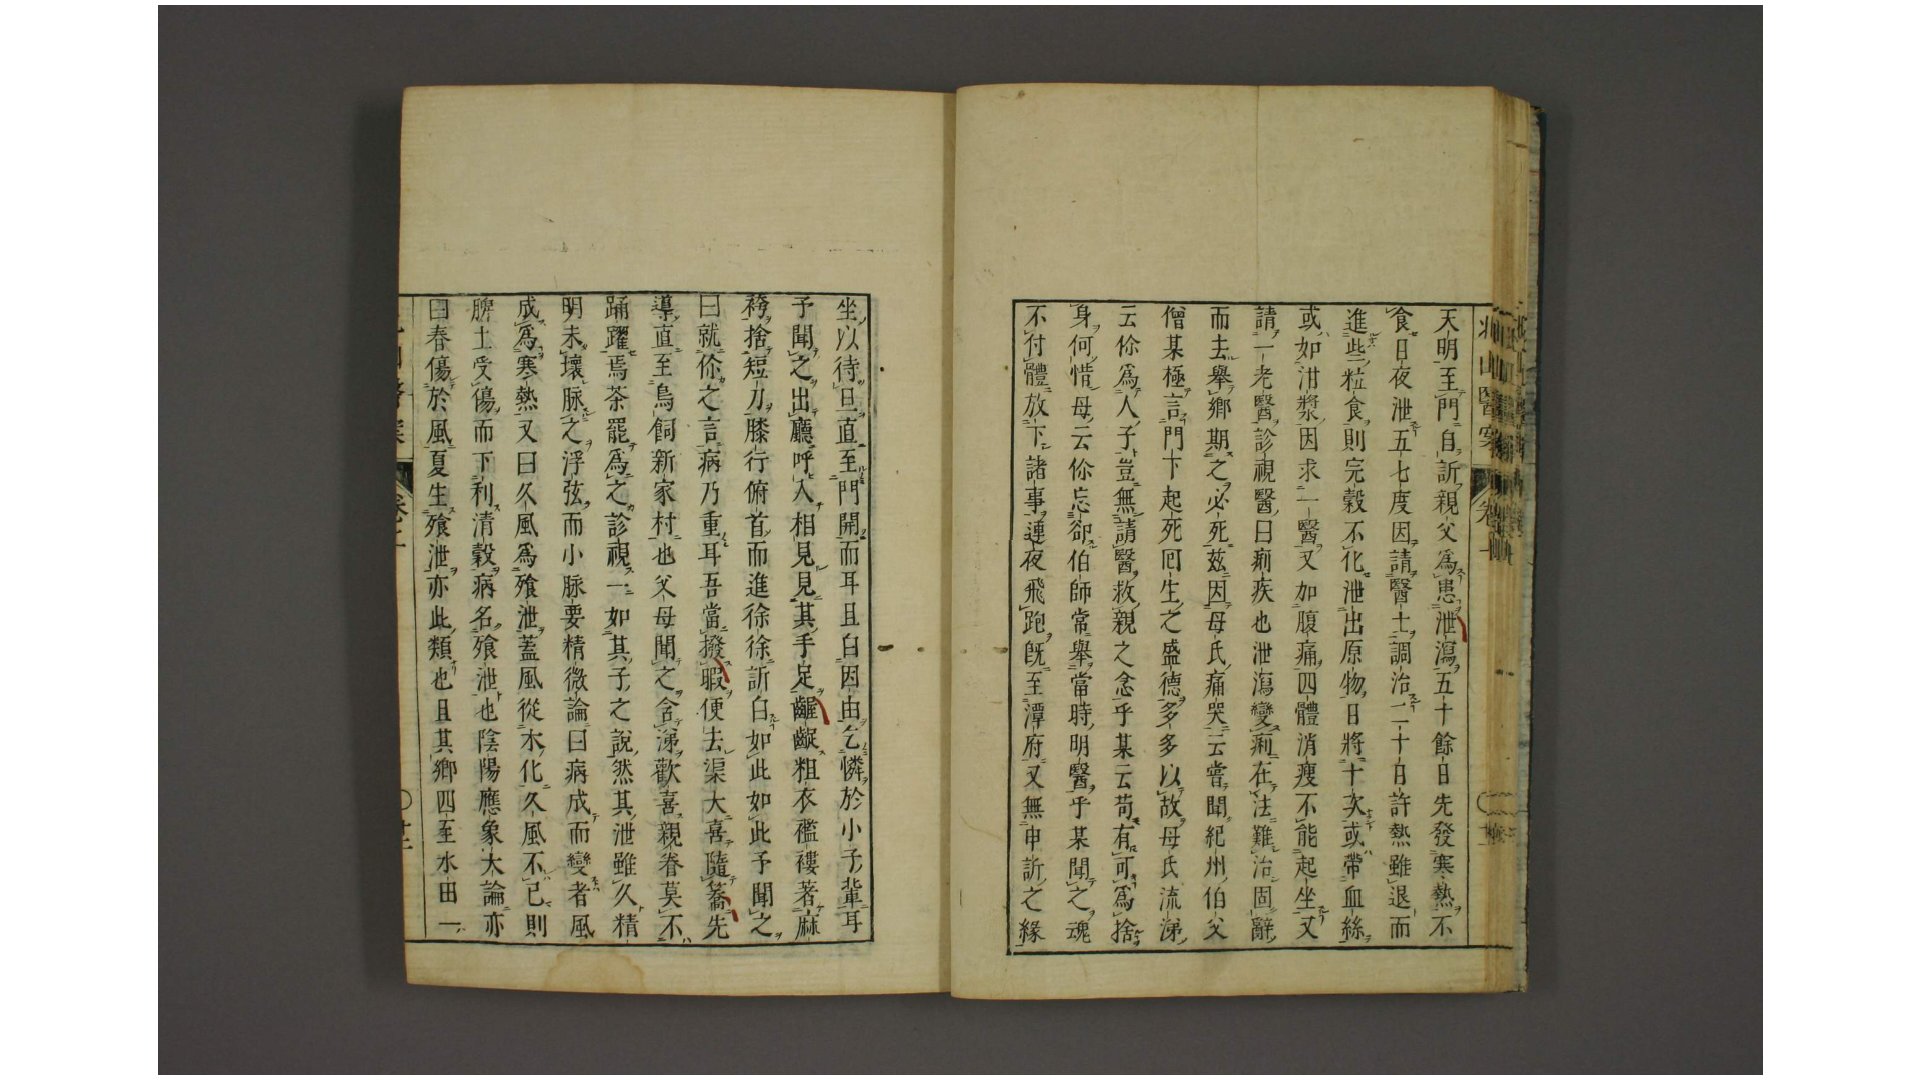 天明至門自訢親父爲患泄瀉五十餘日先發寒熱不
食日夜泄五七度因請醫士調治二十日許熱雖退而
進些粒食則完穀不化泄出原物日將十次或帶血絲
或如泔漿因求一醫又加腹痛四體消瘦不能起坐又
請一老醫診視醫曰痢疾也泄瀉變痢在法難治固辭
而去舉鄉期之必死茲因母氏痛哭云嘗聞紀州伯父
僧某極言門下起死回生之盛德多多以故母氏流涕
云你爲人子豈無請醫救親之念乎某云苟有可爲捨
身何惜母云你忘卻伯師常舉當時明醫乎某聞之魂
不付體放下諸事連夜飛跑既至潭府又無申訢之緣
坐以待旦直至門開而耳且白因由乞憐於小子輩耳
予聞之出廳呼入相見見其手足齷齪粗衣襤褸著麻
袴捨短刀膝行俯首而進徐徐訢白如此如此予聞之
曰就你之言病乃重耳吾當撥暇便去渠大喜隨籌先
導直至烏飼新家村也父母聞之含涕歡喜親眷莫不
踊躍焉茶罷爲之診視一如其子之說然其泄雖久精
明未壞脉之浮弦而小脉要精微論曰病成而變者風
成爲寒熱又曰久風爲飱泄蓋風從木化久風不已則
脾土受傷而下利清穀病名飱泄也陰陽應象大論亦
曰春傷於風夏生飱泄亦此類也且其鄉四至水田一
山醫案
卷一